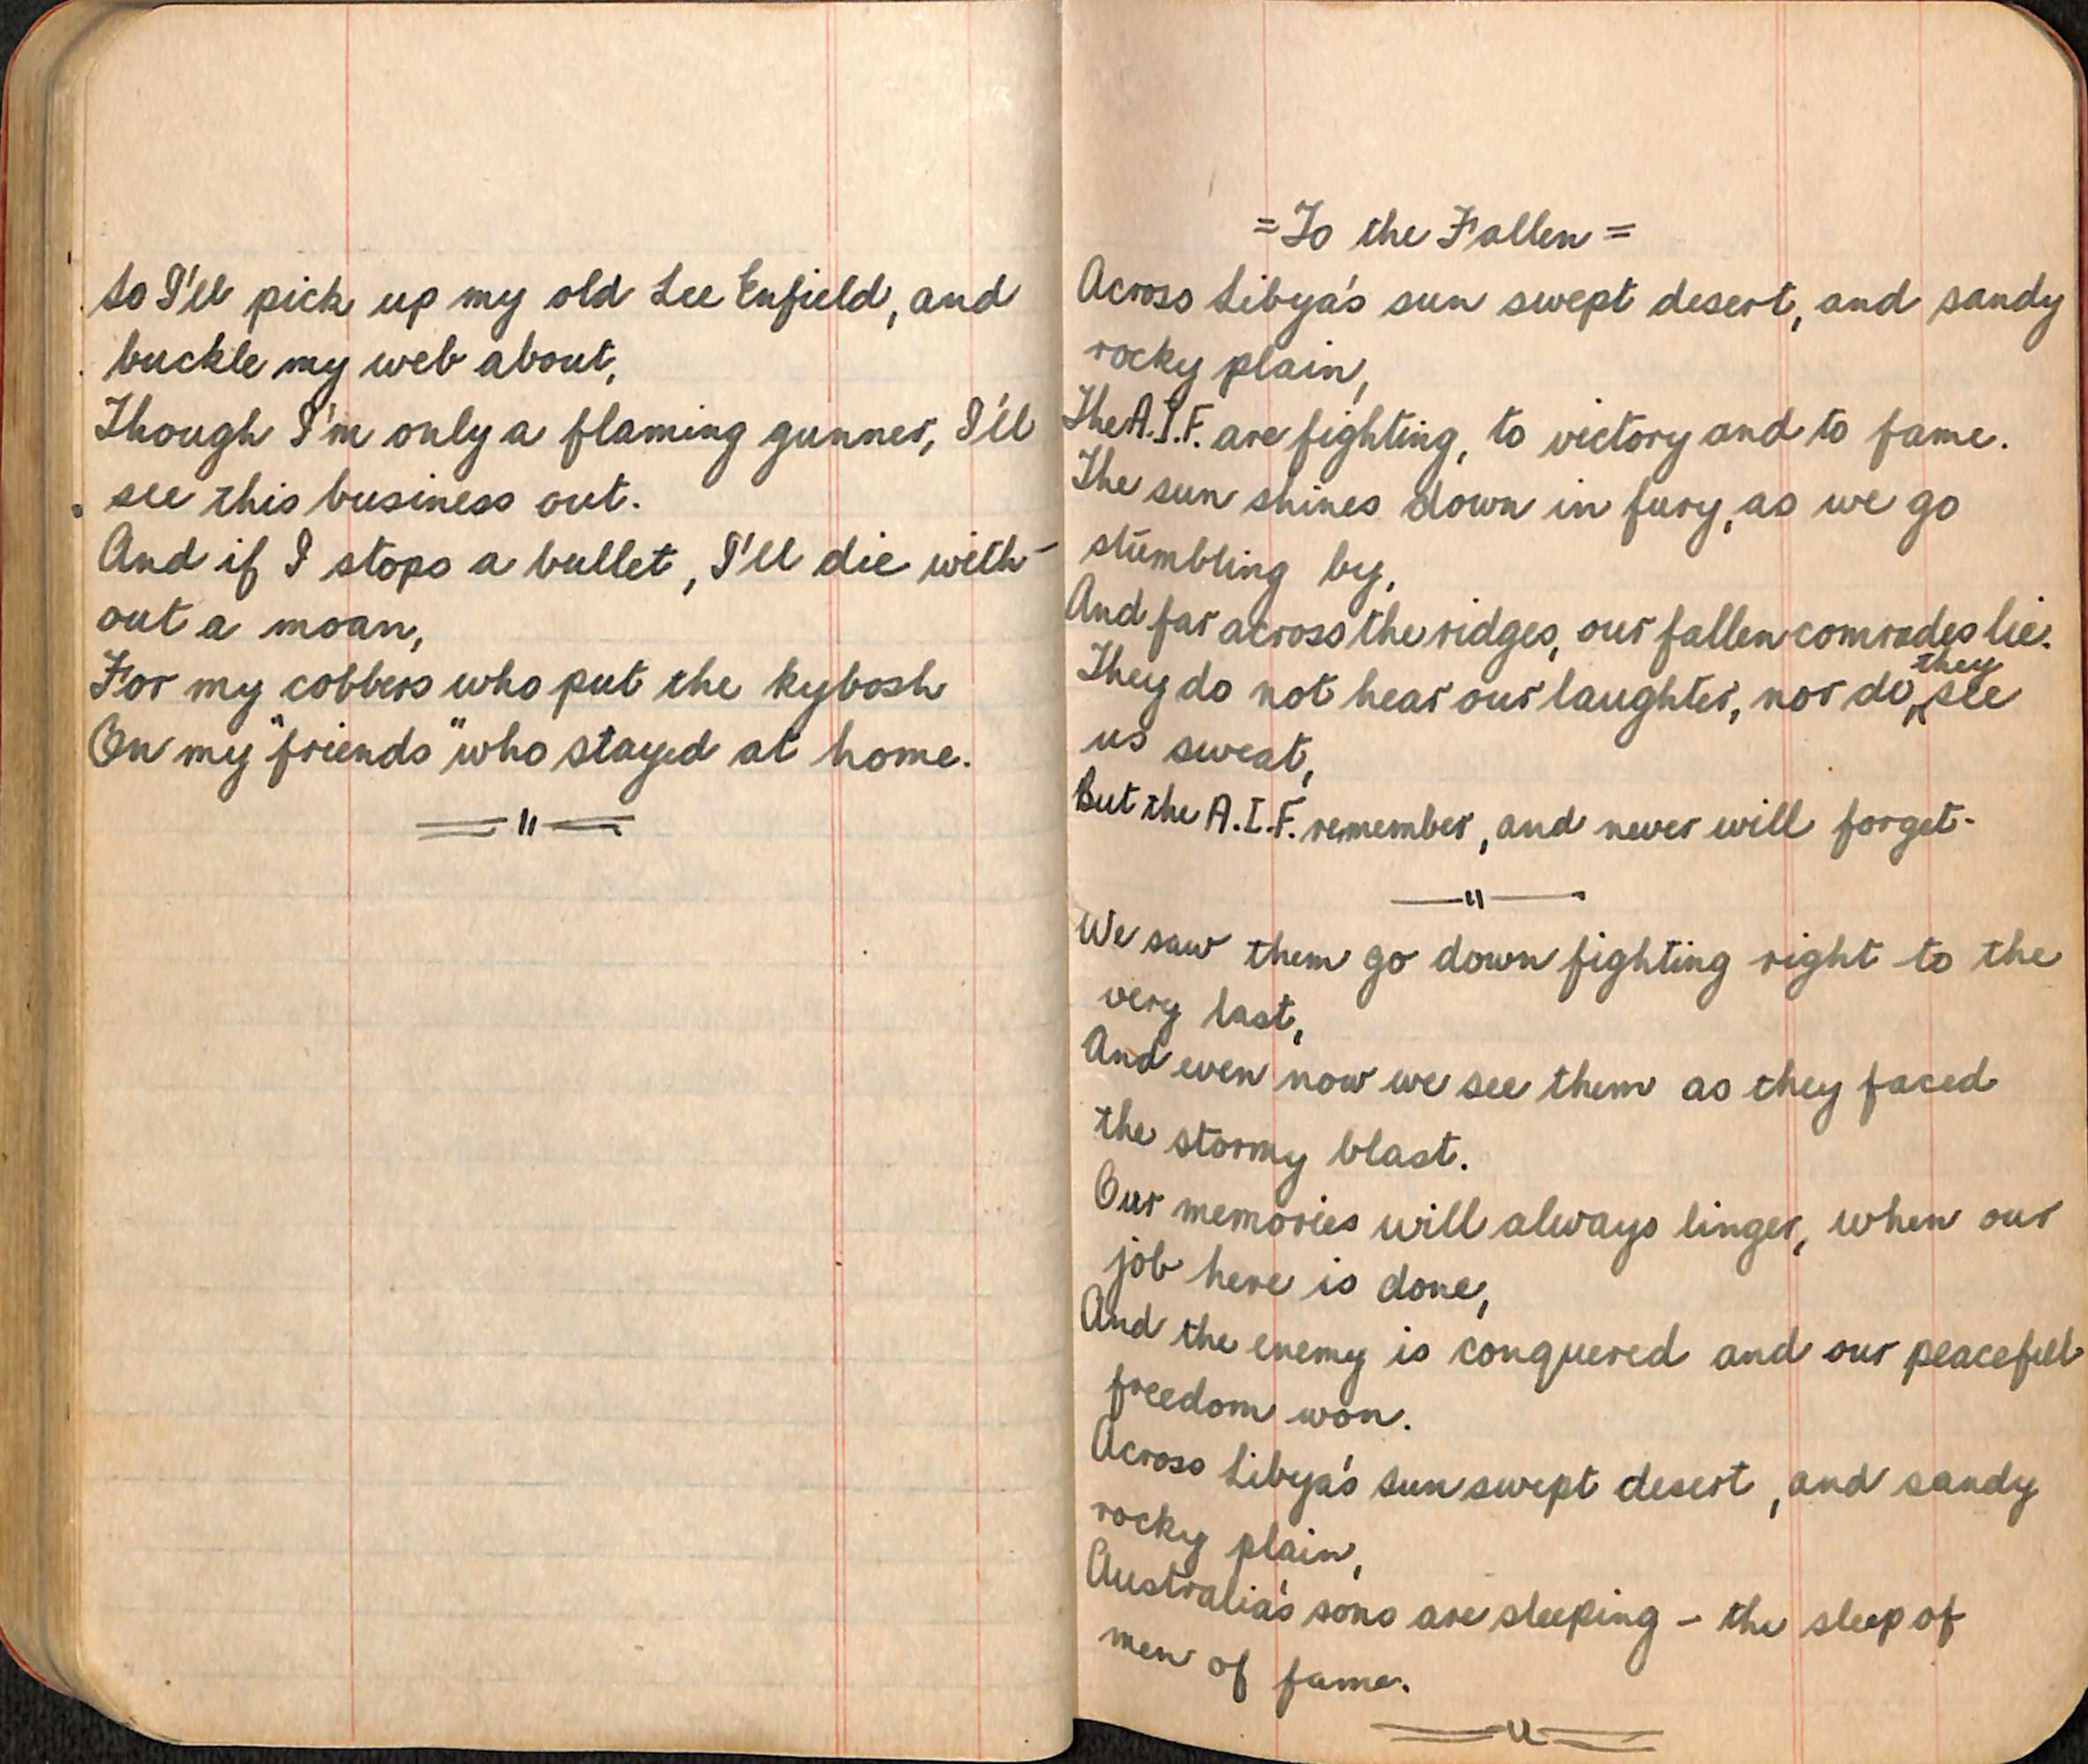 So I'll pick up my old Lee Enfield, and
buckle my web about,
Though I'm only a flaming gunner, I'll
see this business out.
And if I stops a bullet, I'll die with-
out a moan,
For my cobbers who put the kybosh
On my "friends" who stayed at home.
= To the Fallen =
Across Libya's sun swept desert, and sandy
rocky plain,
The A.I.F. are fighting, to victory and to fame.
The sun shines down in fury, as we go
stumbling by,
And far across the ridges, our fallen comrades lie.
They do not hear our laughter, nor do they see
us sweat,
But the A.I.F. remember, and never will forget.
We saw them go down fighting right to the
very last,
And even now we see them as they faced
the stormy blast.
Our memories will always linger, when our
job here is done,
And the enemy is conquered and our peacefull
freedom won.
Across Libya's sun swept desert, and sandy
rocky plain,
Australia's sons are sleeping - the sleep of
men of fame.